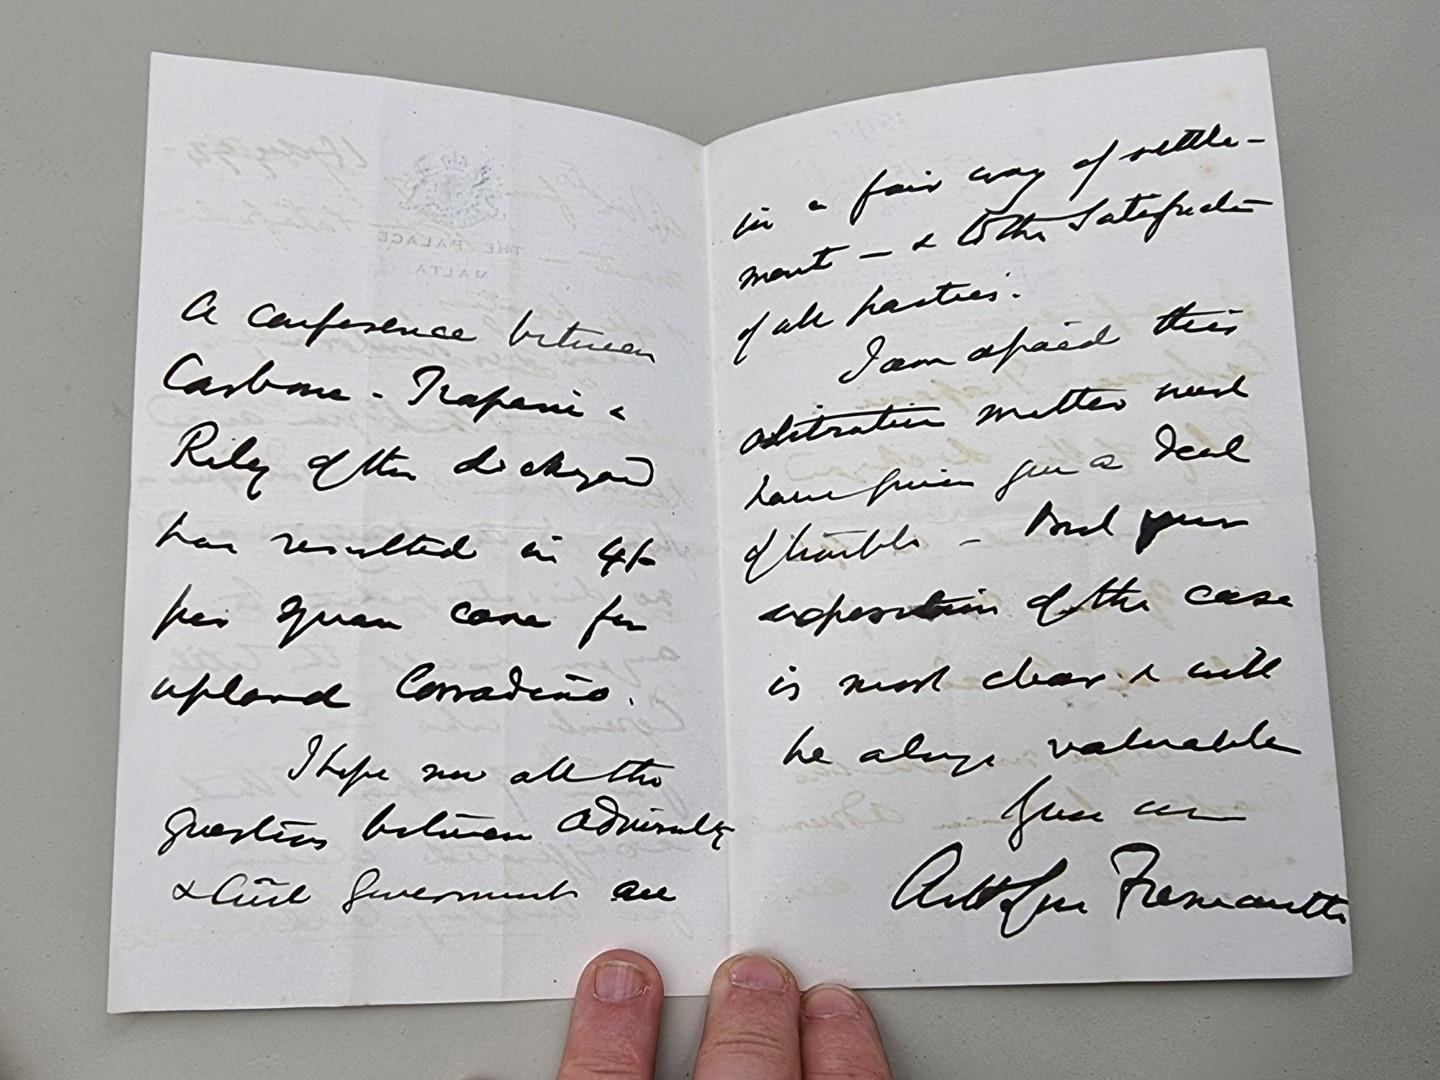 A conference between
Carbone - Trapani &
Riley of the dockyard
has resulted in 4/-
per square cane for
upland Corradino.
I hope now all the
questions between Admiralty
& Civil Government are
in a fair way of settle-
ment - & to the satisfaction
of all parties.
I am afraid this
arbitration matter must
have given you a deal
of trouble - And your
exposition of the case
is most clear & will
be always valuable
Yrs ever
Arthur Fremantle
THE PALACE
MALTA